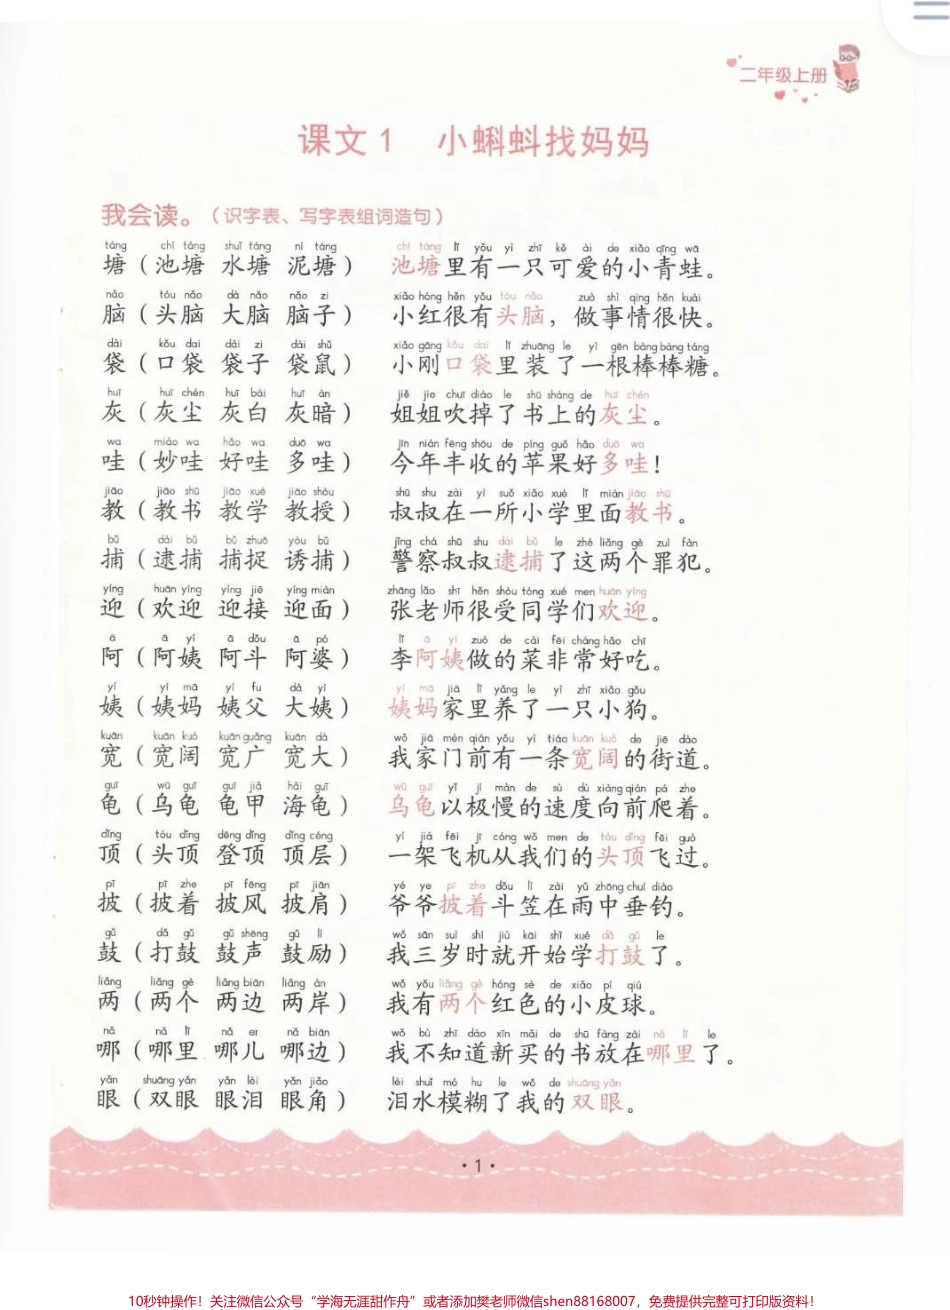 二年级上册
课文1 小蝌蚪找妈妈
我会读。（识字表、写字表组词造句）
táng chí táng shuǐ táng ní táng chí táng lǐ yǒu yì zhī kě ài de xiǎo qīng wā
塘（池塘 水塘 泥塘） 池塘里有一只可爱的小青蛙。
nǎo tóu nǎo dà nǎo nǎo zi xiǎo hóng hěn yǒu tóu nǎo zuò shì qing hěn kuài
脑（头脑 大脑 脑子） 小红很有头脑，做事情很快。
dài kǒu dai dài zi dài shǔ xiǎo gāng kǒu dai lǐ zhuāng le yì gēn bàng bàng táng
袋（口袋 袋子 袋鼠） 小刚口袋里装了一根棒棒糖。
huī huī chén huī bái huī àn jiě jie chuī diào le shū shàng de huī chén
灰（灰尘 灰白 灰暗） 姐姐吹掉了书上的灰尘。
wa miào wa hǎo wa duō wa jīn nián fēng shōu de píng guǒ hǎo duō wa
哇（妙哇 好哇 多哇） 今年丰收的苹果好多哇！
jiāo jiāo shū jiāo xué jiāo shòu shū shu zài yì suǒ xiǎo xué lǐ miàn jiāo shū
教（教书 教学 教授） 叔叔在一所小学里面教书。
bǔ dài bǔ bǔ zhuō yòu bǔ jǐng chá shū shu dài bǔ le zhè liǎng gè zuì fàn
捕（逮捕 捕捉 诱捕） 警察叔叔逮捕了这两个罪犯。
yíng huān yíng yíng jiē yíng miàn zhāng lǎo shī hěn shòu tóng xué men huān yíng
迎（欢迎 迎接 迎面） 张老师很受同学们欢迎。
ā ā yí ā dǒu ā pó lǐ ā yí zuò de cài fēi cháng hǎo chī
阿（阿姨 阿斗 阿婆） 李阿姨做的菜非常好吃。
yí yí mā yí fu dà yí yí mā jiā lǐ yǎng le yì zhī xiǎo gǒu
姨（姨妈 姨父 大姨） 姨妈家里养了一只小狗。
kuān kuān kuò kuān guǎng kuān dà wǒ jiā mén qián yǒu yì tiáo kuān kuò de jiē dào
宽（宽阔 宽广 宽大） 我家门前有一条宽阔的街道。
guī wū guī guī jiǎ hǎi guī wū guī yǐ jí màn de sù dù xiàng qián pá zhe
龟（乌龟 龟甲 海龟） 乌龟以极慢的速度向前爬着。
dǐng tóu dǐng dēng dǐng dǐng céng yí jià fēi jī cóng wǒ men de tóu dǐng fēi guò
顶（头顶 登顶 顶层） 一架飞机从我们的头顶飞过。
pī pī zhe pī fēng pī jiān yé ye pī zhe dǒu lì zài yǔ zhōng chuí diào
披（披着 披风 披肩） 爷爷披着斗笠在雨中垂钓。
gǔ dǎ gǔ gǔ shēng gǔ lì wǒ sān suì shí jiù kāi shǐ xué dǎ gǔ le
鼓（打鼓 鼓声 鼓励） 我三岁时就开始学打鼓了。
liǎng liǎng gè liǎng biān liǎng àn wǒ yǒu liǎng gè hóng sè de xiǎo pí qiú
两（两个 两边 两岸） 我有两个红色的小皮球。
nǎ nǎ lǐ nǎ er nǎ biān wǒ bù zhī dào xīn mǎi de shū fàng zài nǎ lǐ le
哪（哪里 哪儿 哪边） 我不知道新买的书放在哪里了。
yǎn shuāng yǎn yǎn lèi yǎn jiǎo lèi shuǐ mó hu le wǒ de shuāng yǎn
眼（双眼 眼泪 眼角） 泪水模糊了我的双眼。
·1·
10秒钟操作！关注微信公众号“学海无涯甜作舟”或者添加樊老师微信shen88168007，免费提供完整可打印版资料！